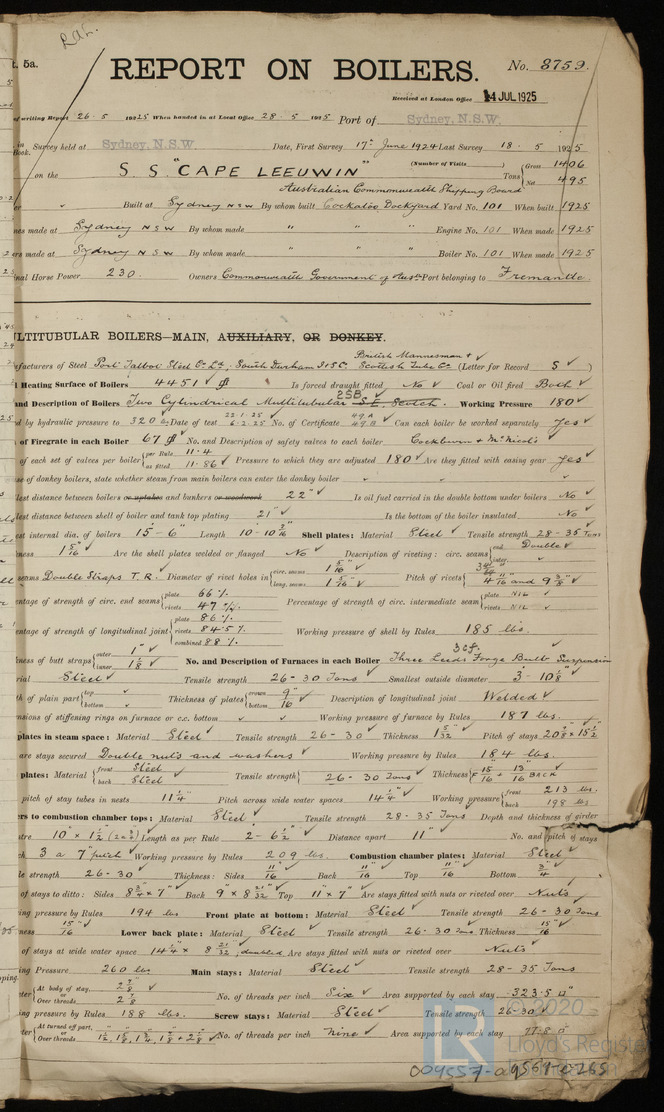 R a L.
t. 5a.
REPORT ON BOILERS.
No. 3759.
Received at London Office 14 JUL 1925
of writing Report 26·5 1925 When handed in at Local Office 28·5 1925 Port of Sydney, N.S.W.
in Book. Survey held at Sydney, N.S.W. Date, First Survey 17th June 1924 Last Survey 18 · 5 1925
(Number of Visits ) Gross 1406
on the S. S. "CAPE LEEUWIN" Tons Net 495
Australian Commonwealth Shipping Board
Built at Sydney N S W By whom built Cockatoo Dockyard Yard No. 101 When built 1925
nes made at Sydney N S W By whom made " " " Engine No. 101 When made 1925
ers made at Sydney N S W By whom made " " " Boiler No. 101 When made 1925
nal Horse Power 230. Owners Commonwealth Government of Aust Port belonging to Fremantle.
LTITUBULAR BOILERS—MAIN, AUXILIARY, OR DONKEY.
British Mannesmann +
ufacturers of Steel Port Talbot Steel Co Ltd, South Durham S & I C. Scottish Tube Co (Letter for Record S )
l Heating Surface of Boilers 4451 Is forced draught fitted No Coal or Oil fired Both
2SB
and Description of Boilers Two Cylindrical Multitubular S.E. Scotch. Working Pressure 180
d by hydraulic pressure to 320 lbs Date of test 22·1·25 6·2·25 No. of Certificate 49A 49B Can each boiler be worked separately Yes
of Firegrate in each Boiler 67 No. and Description of safety valves to each boiler Cockburn + McNicol's
of each set of valves per boiler per Rule 11·4 as fitted 11·86 Pressure to which they are adjusted 180 Are they fitted with easing gear Yes
se of donkey boilers, state whether steam from main boilers can enter the donkey boiler
lest distance between boilers or uptakes and bunkers or woodwork 22" Is oil fuel carried in the double bottom under boilers No
lest distance between shell of boiler and tank top plating 21" Is the bottom of the boiler insulated No
est internal dia. of boilers 15'-6" Length 10'-10 3/16 Shell plates: Material Steel Tensile strength 28-35 Tons
ness 1 5/16" Are the shell plates welded or flanged No Description of riveting: circ. seams end Double inter.
seams Double Straps T.R. Diameter of rivet holes in circ. seams 1 5/16 long. seams 1 5/16 Pitch of rivets 4 11/16 and 9 3/8"
entage of strength of circ. end seams plate 66 % rivets 47 % Percentage of strength of circ. intermediate seam plate Nil rivets Nil
entage of strength of longitudinal joint plate 86 % rivets 84·5 % combined 88 % Working pressure of shell by Rules 185 lbs.
kness of butt straps outer 1" inner 1 1/8 No. and Description of Furnaces in each Boiler 3 cf. Three Leeds Forge Bulb Suspension
rial Steel Tensile strength 26-30 Tons Smallest outside diameter 3'-10 1/8"
th of plain part top bottom Thickness of plates crown bottom 9/16" Description of longitudinal joint Welded
nsions of stiffening rings on furnace or c.c. bottom Working pressure of furnace by Rules 187 lbs.
plates in steam space: Material Steel Tensile strength 26-30 Thickness 1 5/32 Pitch of stays 20 1/8 x 15 1/2"
are stays secured Double nuts and washers Working pressure by Rules 184 lbs.
plates: Material front Steel back Steel Tensile strength 26-30 Tons Thickness F 15/16 + 13/16 BACK
pitch of stay tubes in nests 11 1/4" Pitch across wide water spaces 14 1/4" Working pressure front 213 lbs. back 198 lbs
ers to combustion chamber tops: Material Steel Tensile strength 28-35 Tons Depth and thickness of girder
tre 10" x 1 1/2 Length as per Rule 2-6 1/2" Distance apart 11" No. and pitch of stays
ch. 3 a 7" pitch Working pressure by Rules 209 lbs. Combustion chamber plates: Material Steel
le strength 26-30 Thickness: Sides 11/16" Back 11/16" Top 11/16" Bottom 3/4"
of stays to ditto: Sides 8 3/4 x 7" Back 9" x 8 21/32 Top 11" x 7" Are stays fitted with nuts or riveted over Nuts
ng pressure by Rules 194 lbs Front plate at bottom: Material Steel Tensile strength 26-30 Tons
ness 15/16" Lower back plate: Material Steel Tensile strength 26-30 Tons Thickness 15/16"
of stays at wide water space 14 1/4" x 8 21/32 doubled Are stays fitted with nuts or riveted over Nuts
ing Pressure 260 lbs Main stays: Material Steel Tensile strength 28-35 Tons
ter At body of stay, or Over threads 2 7/8 2 7/8 No. of threads per inch Six Area supported by each stay 323·5 □"
ng pressure by Rules 188 lbs. Screw stays: Material Steel Tensile strength 26-30
ter At turned off part, or Over threads No. of threads per inch Nine Area supported by each stay 77·8 □"
© 2020
LR
Lloyd's Register
004557-004569-0265